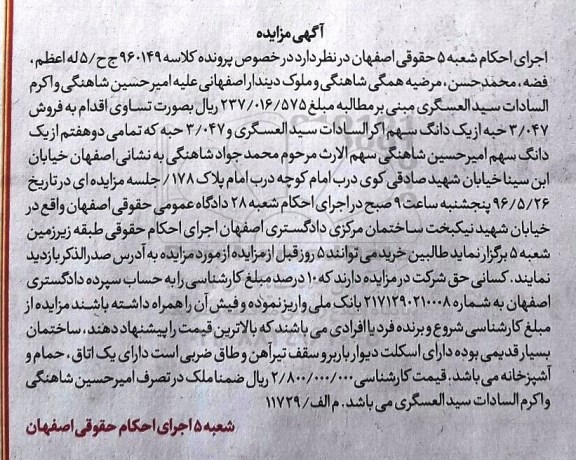 آگهی مزایده
اجرای احکام شعبه ۵ حقوقی اصفهان در نظر دارد در خصوص پرونده کلاسه ۹۶۰۱۴۹ ج ح/۵ له اعظم،
فضه، محمدحسن، مرضیه همگی شاهنگی و ملوک دیندار اصفهانی علیه امیرحسین شاهنگی و اکرم
السادات سید العسگری مبنی بر مطالبه مبلغ ۲۳۷/۰۱۶/۵۷۵ ریال بصورت تساوی اقدام به فروش
۳/۰۴۷ حبه از یک دانگ سهم اکرالسادات سید العسگری و ۳/۰۴۷ حبه که تمامی دو هفتم از یک
دانگ سهم امیرحسین شاهنگی سهم الارث مرحوم محمدجواد شاهنگی به نشانی اصفهان خیابان
ابن سینا خیابان شهید صادقی کوی درب امام کوچه درب امام پلاک ۱۷۸/ جلسه مزایده ای در تاریخ
۹۶/۵/۲۶ پنجشنبه ساعت ۹ صبح در اجرای احکام شعبه ۲۸ دادگاه عمومی حقوقی اصفهان واقع در
خیابان شهید نیکبخت ساختمان مرکزی دادگستری اصفهان اجرای احکام حقوقی طبقه زیرزمین
شعبه ۵ برگزار نماید طالبین خرید می توانند ۵ روز قبل از مزایده از مورد مزایده به آدرس صدرالذکر بازدید
نمایند. کسانی حق شرکت در مزایده دارند که ۱۰ درصد مبلغ کارشناسی را به حساب سپرده دادگستری
اصفهان به شماره ۲۱۷۱۲۹۰۲۱۰۰۰۸ بانک ملی واریز نموده و فیش آن را همراه داشته باشند مزایده از
مبلغ کارشناسی شروع و برنده فرد یا افرادی می باشند که بالاترین قیمت را پیشنهاد دهند، ساختمان
بسیار قدیمی بوده دارای اسکلت دیوار باربر و سقف تیرآهن و طاق ضربی است دارای یک اتاق، حمام و
آشپزخانه می باشد. قیمت کارشناسی ۲/۸۰۰/۰۰۰/۰۰۰ ریال ضمنا ملک در تصرف امیرحسین شاهنگی
و اکرم السادات سید العسگری می باشد. م الف/ ۱۱۷۲۹
شعبه ۵ اجرای احکام حقوقی اصفهان